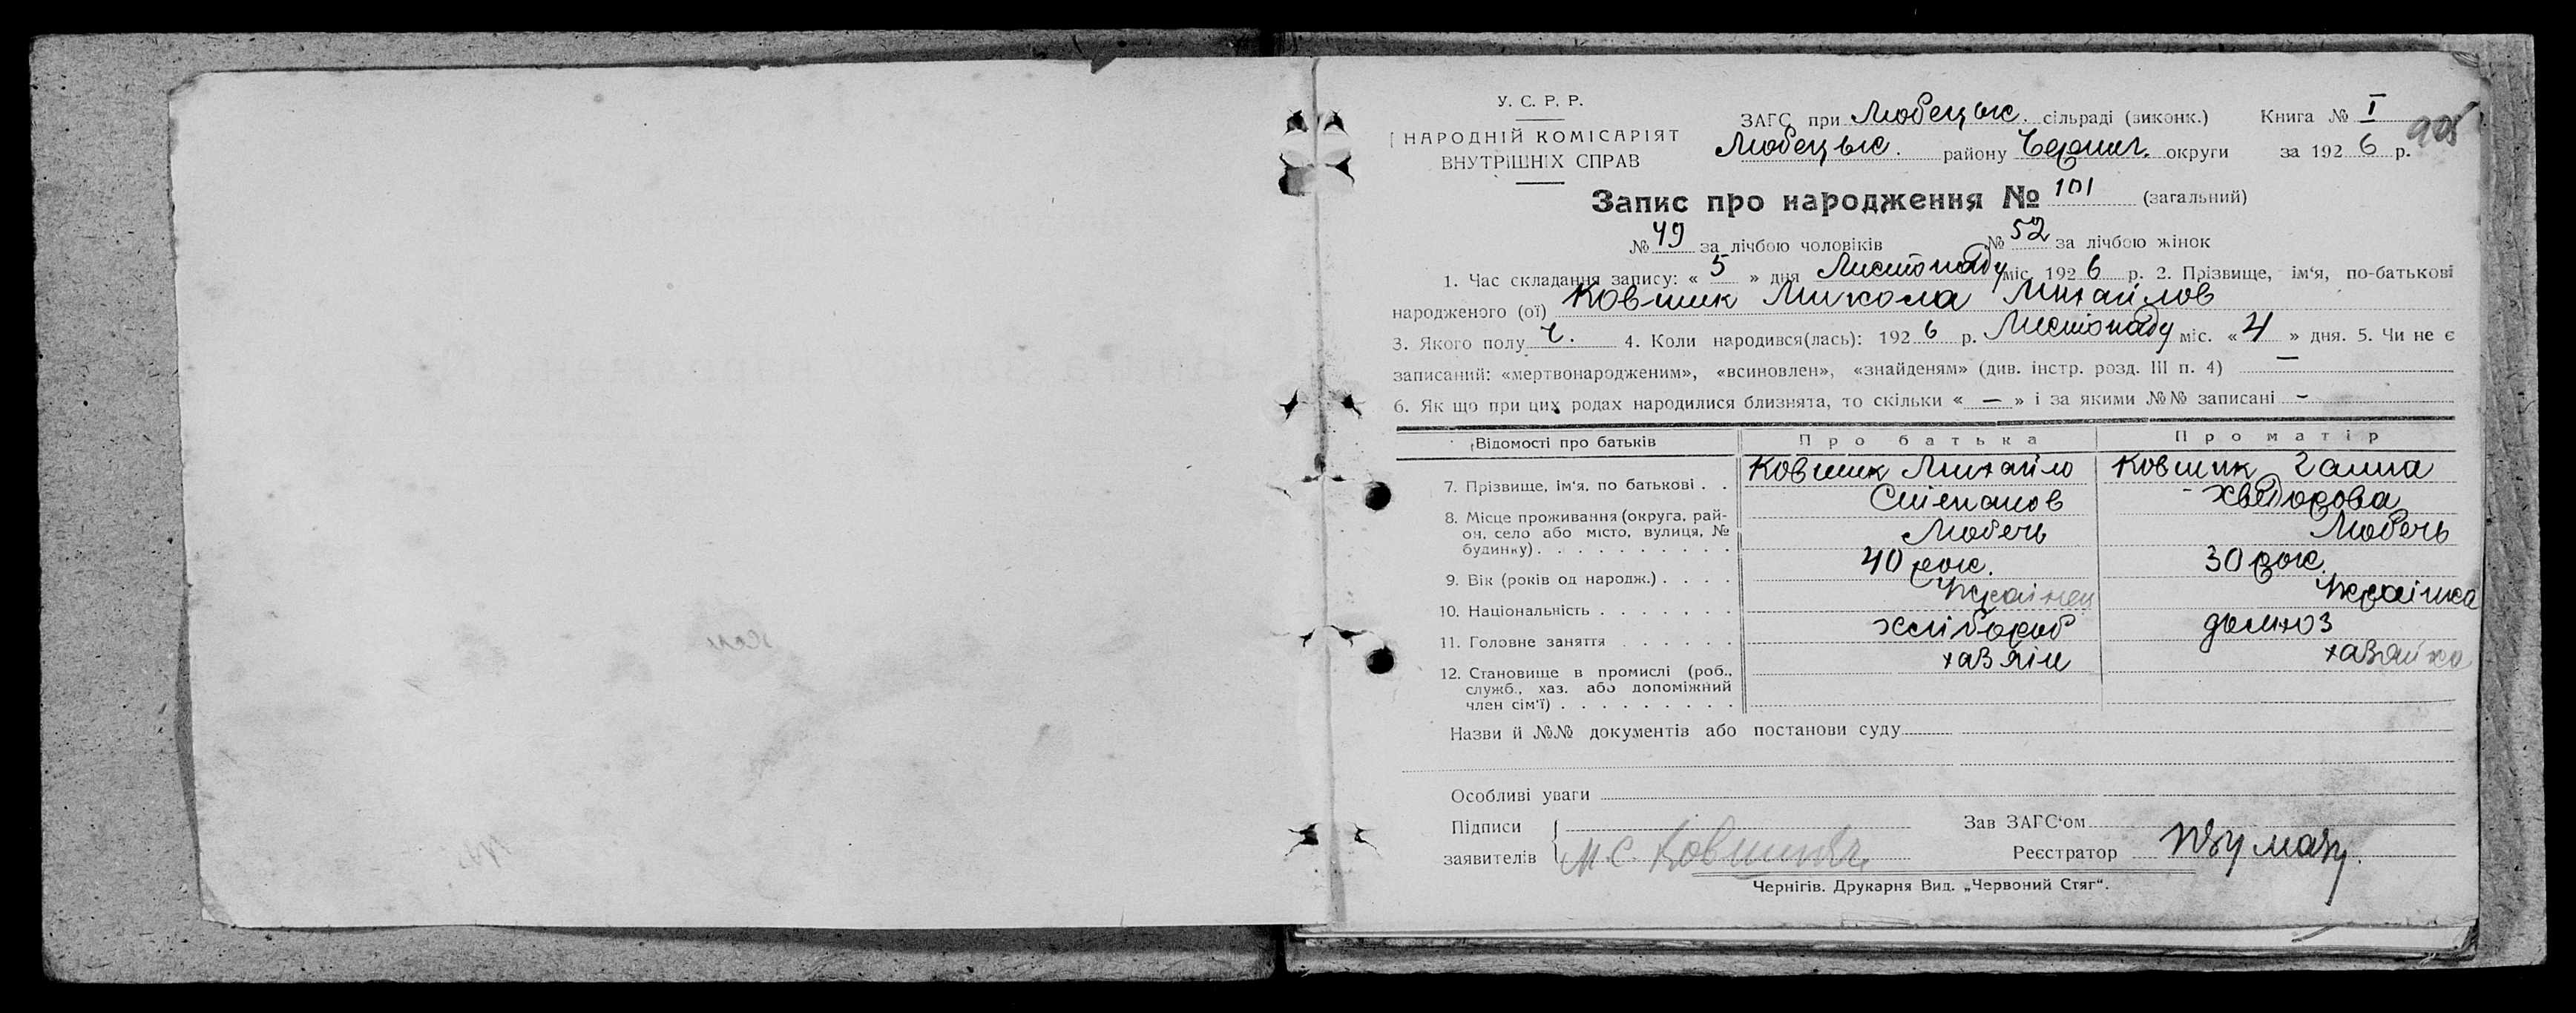 У. С. Р. Р.
НАРОДНІЙ КОМІСАРІЯТ
ВНУТРІШНІХ СПРАВ
ЗАГС при Любецьк. сільраді (виконк.) Книга № I
Любецьк. району Черниг. округи за 1926 р.
Запис про народження № 101 (загальний)
№ 49 за лічбою чоловіків № 52 за лічбою жінок
1. Час складання запису: « 5 » дня Листопаду міс. 1926 р. 2. Прізвище, ім'я, по-батькові
народженого (ої) Ковшик Микола Михайлов
3. Якого полу ч. 4. Коли народився(лась): 1926 р. Листопаду міс. « 4 » дня. 5. Чи не є
записаний: «мертвонародженим», «всиновлен», «знайденям» (див. інстр. розд. III п. 4) —
6. Як що при цих родах народилися близнята, то скільки « — » і за якими №№ записані —
Відомості про батьків Про батька Про матір
7. Прізвище, ім'я, по батькові . . Ковшик Михайло Степанов Ковшик Галина Хведорова
8. Місце проживання (округа, рай-
он, село або місто, вулиця, №
будинку) . . . . . . . . . . Любечь Любечь
9. Вік (років од народж.) . . . . 40 рок. 30 рок.
10. Національність . . . . . . . Українец Українка
11. Головне заняття . . . . . . хлібороб домхоз
12. Становище в промислі (роб.,
служб., хаз. або допоміжний
член сім'ї) . . . . . . . . . хазяін хазяйка
Назви й №№ документів або постанови суду
Особливі уваги
Підписи
заявителів М. С. Ковшик
Зав ЗАГС'ом
Реєстратор
Чернігів. Друкарня Вид. „Червоний Стяг“.